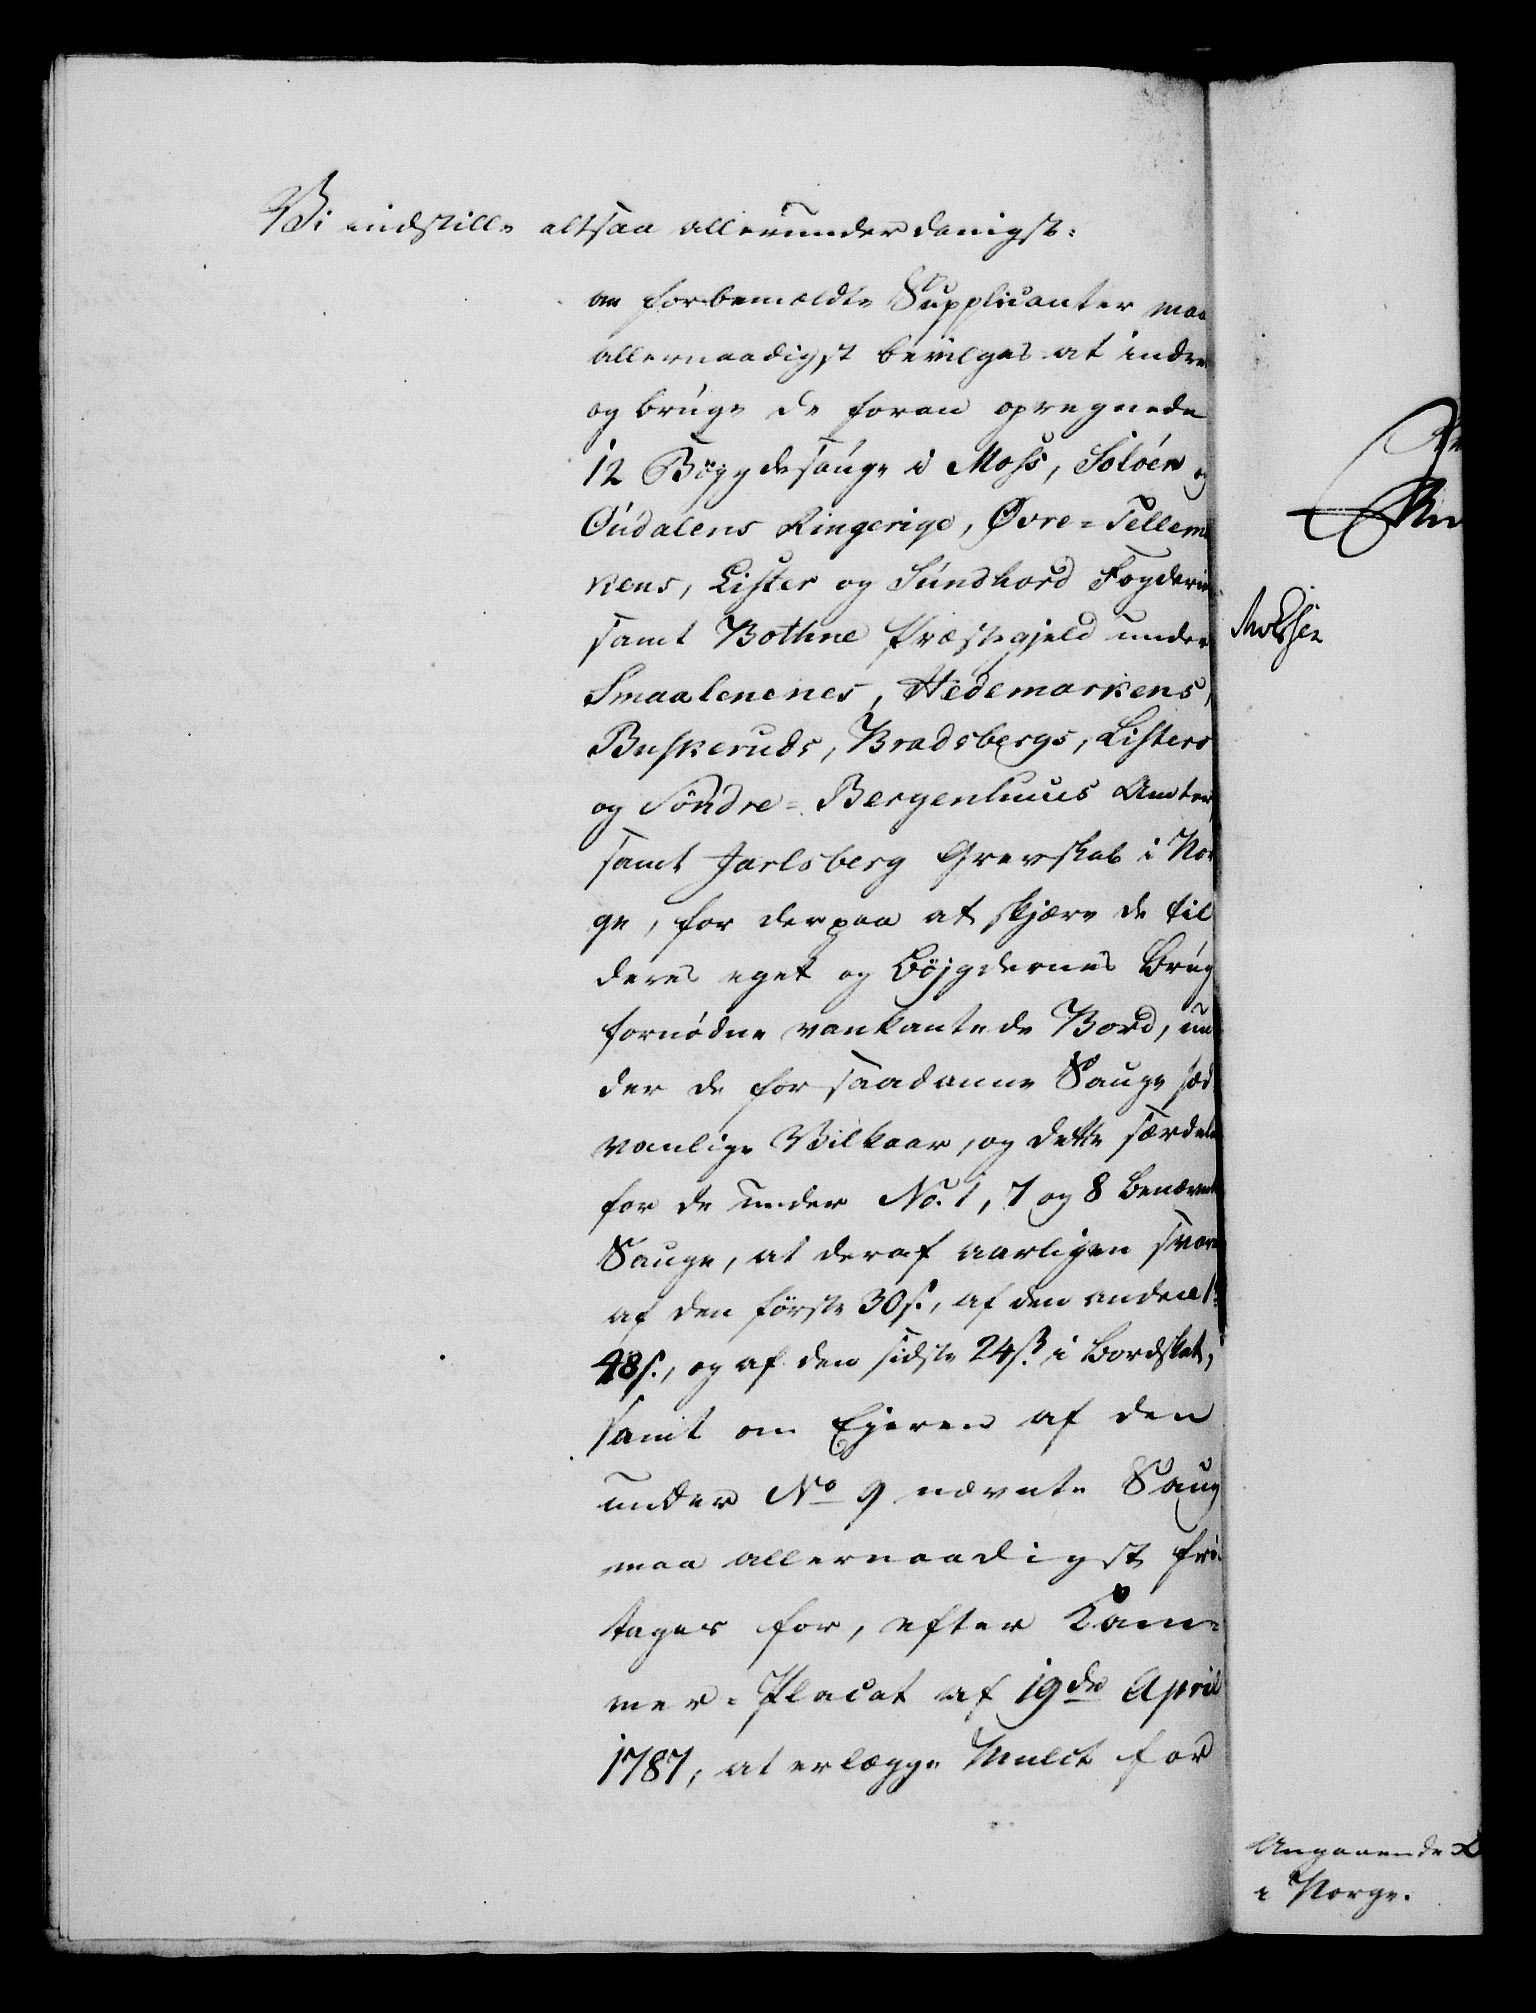 Vi indstille altsaa allerunderdanigst:
at forbemeldte Supplicanter maa
allernaadigst bevilges at indre
og bruge de foran opregnede
12 Bøygdesauge i Moss, Soløer og
Oudalens Ringerige, Øvre-Tellem
kens, Lister og Sundhord Fogderie
samt Bothne Præstegjeld under
Smaalenenes, Hedemarkens,
Buskeruds, Bradsbergs, Listers
og Søndre-Bergenhuus Amter,
samt Jarlsberg Grevskab i Nor
ge, for derpaa at skjære de til
deres eget og Bøjgdernes Brug
fornødne vankantede Bord, un
der de for saadanne Sauge sæd
vanlige Vilkaar, og dette særdeles
for de under No. 1, 7 og 8 benævnte
Sauge, at deraf aarligen svares
af den første 30 s., af den anden
48 s., og af den sidste 24 s. i Bordskat,
samt om Ejeren af den
under No 9 nævnte Saug
maa allernaadigst fri-
tages for, efter Kam-
mer-Placat af 19de April
1787, at erlægge Mulct for
Angaaende
i Norge.